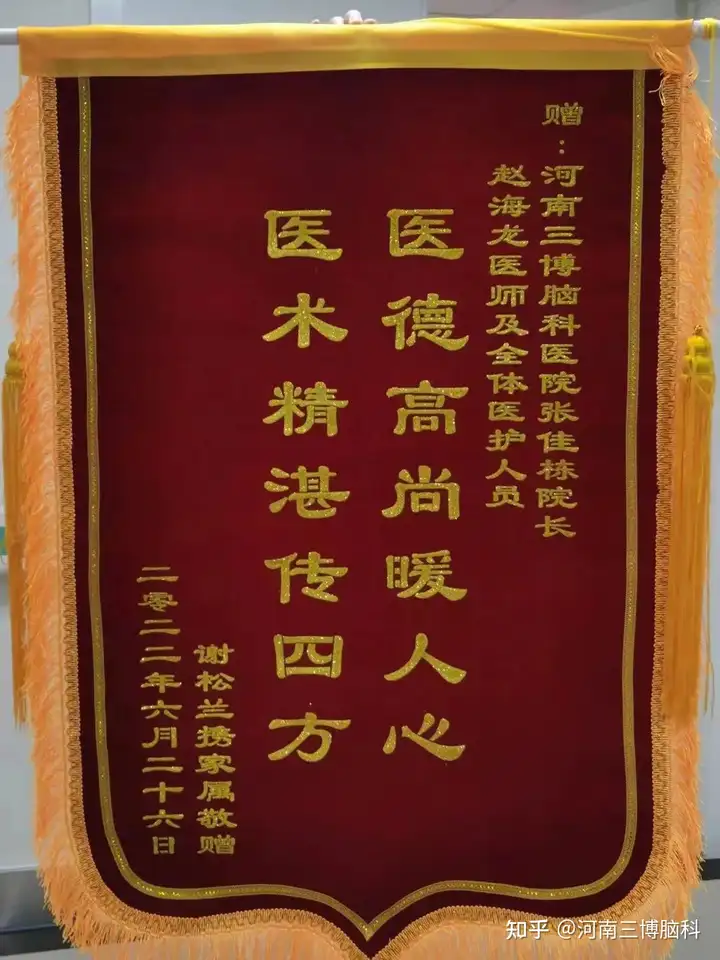 赠：河南三博脑科医院张佳栋院长
赵海龙医师及全体医护人员
医德高尚暖人心
医术精湛传四方
谢松兰携家属敬赠
二零二二年六月二十六日
知乎 @河南三博脑科